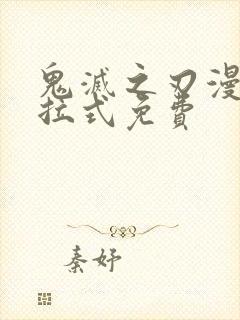 鬼滅之刃漫
拉式免費
秦妤